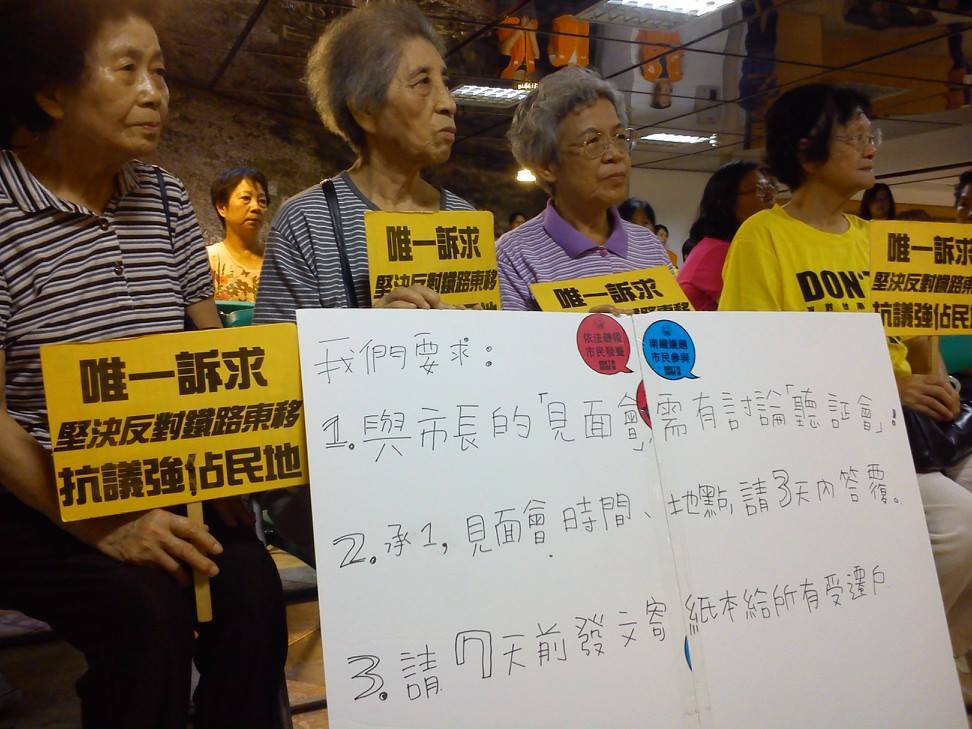 唯一訴求
堅決反對鐵路東移
抗議強佔民地
唯一訴求
堅決反對鐵路東移
唯一訴求
DON'T
唯一訴求
堅決反對鐵路東移
抗議強佔民地
依法聽證
市民發聲
南鐵議題
市民參與
我們要求：
1. 與市長的「見面會」需有討論「聽証會」！
2. 承1, 見面會 時間、地點, 請3天內答覆。
3. 請7天前發文寄紙本給所有受遷戶